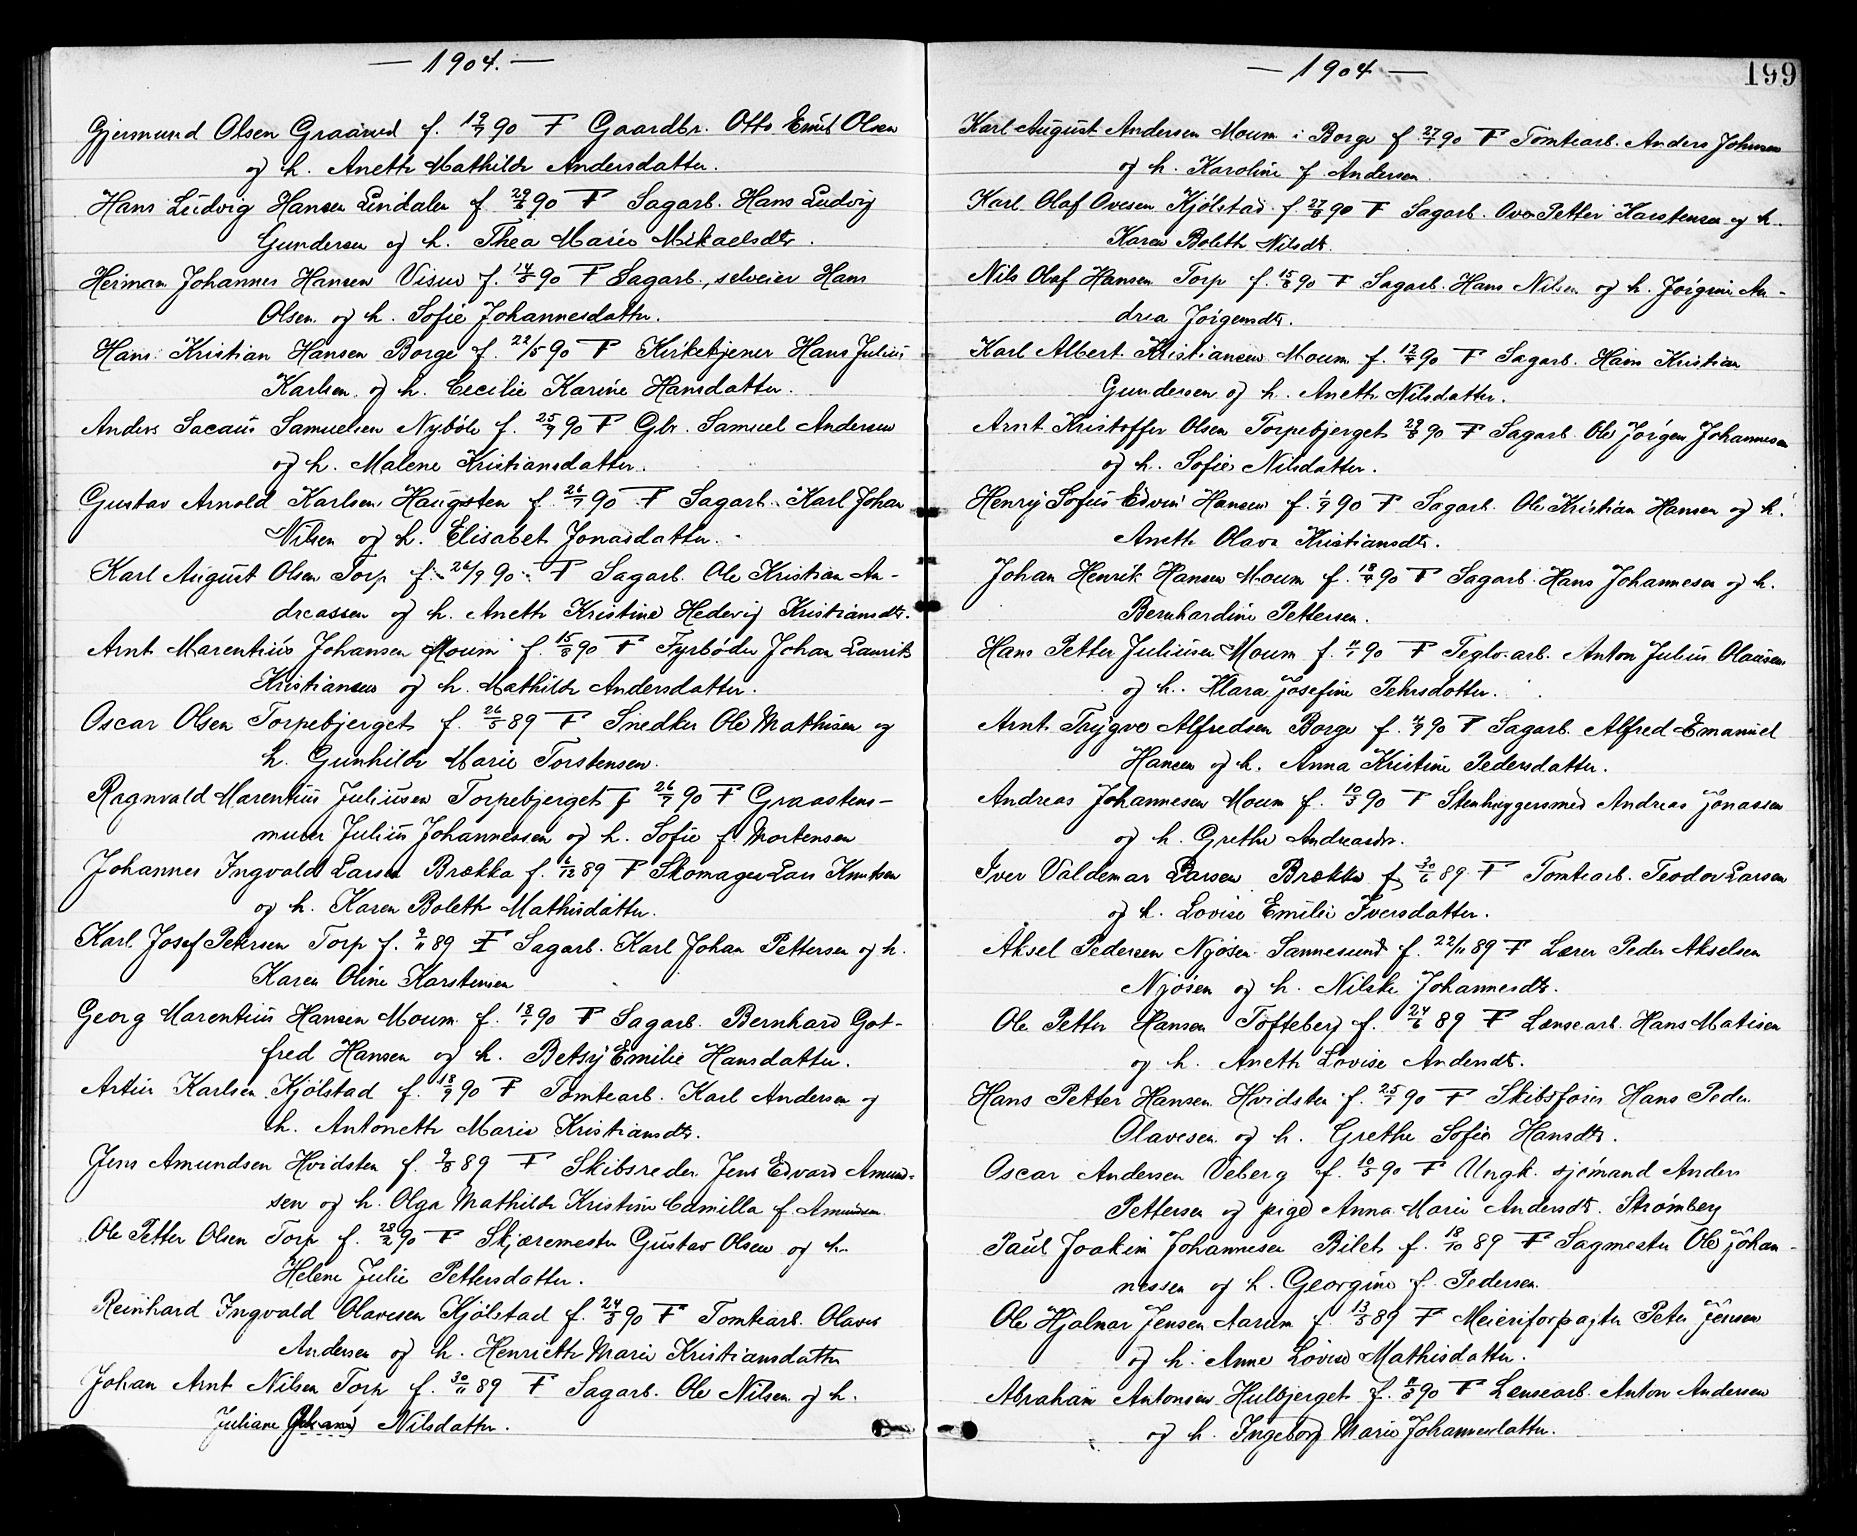 — 1904. —
Gjermund Olsen Graanud f. 19/7 90 F Gaardbr. Otto Emil Olsen
og h. Aneth Mathilde Andersdatter.
Hans Ludvig Hansen Lindalen f. 29/8 90 F Sagarb. Hans Ludvig
Gundersen og h. Thea Marie Mikaelsdtr.
Herman Johannes Hansen Visur f. 14/8 90 F Sagarb., selveier Hans
Olsen og h. Sofie Johannesdatter.
Hans Kristian Hansen Borge f. 22/5 90 F Kirketjener Hans Julius
Karlsen og h. Cecilie Karine Hansdatter.
Anders Sacaus Samuelsen Nyböle f. 25/9 90 F Gbr. Samuel Andersen
og h. Malene Kristiansdatter.
Gustav Arnold Karlsen Haugsten f. 26/7 90 F Sagarb. Karl Johan
Nilsen og h. Elisabet Jonasdatter.
Karl August Olsen Torp f. 26/9 90 F Sagarb. Ole Kristian An-
dreassen og h. Aneth Kristine Hedevig Kristiansdtr.
Arnt Marentius Johansen Moum f. 15/8 90 F Fyrböder Johan Laurits
Kristiansen og h. Mathilde Andersdatter.
Oscar Olsen Torpebjerget f. 26/5 89 F Snedker Ole Mathisen og
h. Gunhilde Marie Torstensen.
Ragnvald Marentius Juliussen Torpebjerget f 26/7 90 F Graastens-
murer Julius Johannessen og h. Sofie f. Mortensen
Johannes Ingvald Larsen Brække f. 6/12 89 F Skomager Lars Knutsen
og h. Karen Boleth Mathisdatter.
Karl Josef Petersen Torp f. 9/11 89 F Sagarb. Karl Johan Pettersen og h.
Karen Oline Karstensen
Georg Marentius Hansen Moum f. 18/1 90 F Sagarb. Bernhard Got-
fred Hansen og h. Betsy Emilie Hansdatter.
Artur Karlsen Kjölstad f. 18/9 90 F Tomtearb. Karl Andersen og
h. Antoneth Marie Kristiansdtr.
Jens Amundsen Hvidsten f. 9/8 89 F Skibsreder Jens Edvard Amund-
sen og h. Olga Mathilde Kristine Camilla f. Amundsen
Ole Petter Olsen Torp f. 28/2 90 F Skjæremester Gustav Olsen og h.
Helene Julie Pettersdatter.
Reinhard Ingvald Olavesen Kjölstad f. 24/3 90 F Tomtearb. Olaves
Andersen og h. Henrieth Marie Kristiansdatter
Johan Arnt Nilsen Torp f. 30/11 89 F Sagarb. Ole Nilsen og h.
Juliane Nilsdatter.
— 1904 —
199
Karl August Andersen Moum i Borge f. 27/7 90 F Tomtearb. Anders Johnsen
og h. Karoline f Andersen
Karl Olaf Ovesen Kjölstad f. 27/8 90 F Sagarb. Ove Petter Karstensen og h.
Karen Boleth Nilsdtr.
Nils Olaf Hansen Torp f. 15/8 90 F Sagarb. Hans Nilsen og h. Jörgine An-
drea Jörgensdtr.
Karl Albert Kristiansen Moum f. 12/9 90 F Sagarb. Hans Kristian
Gundersen og h. Aneth Nilsdatter.
Arnt Kristoffer Olsen Torpebjerget 29/8 90 F Sagarb. Ole Jörgen Johannesen
og h. Sofie Nilsdatter.
Henry Sofus Edvin Hansen f. 1/9 90 F Sagarb. Ole Kristian Hansen og h.
Aneth Olava Kristiansdtr.
Johan Henrik Hansen Moum f. 18/9 90 F Sagarb. Hans Johannesen og h.
Bernhardine Pettersen.
Hans Petter Juliusen Moum f. 4/1 90 F Teglv.arb. Anton Julius Olausen
og h. Klara Josefine Pehrsdotter.
Arnt Trygve Alfredsen Borge f. 4/9 90 F Sagarb. Alfred Emanuel
Hansen og h. Anna Kristine Pedersdatter.
Andreas Johannesen Moum f. 10/3 90 F Stenhuggersmed Andreas Jonassen
og h. Grethe Andreasdtr.
Iver Valdemar Larsen Brække f 30/6 89 F Tomtearb. Teodor Larsen
og h. Lovise Emilie Iversdatter.
Aksel Pedersen Njösen Sannesund f. 22/11 89 F Lærer Peder Akselsen
Njösen og h. Nilske Johannesdtr.
Ole Petter Hansen Tofteberg f. 24/6 89 F Lænsearb. Hans Matisen
og h. Aneth Lovise Andersdtr.
Hans Petter Hansen Hvidsten f. 25/1 90 F Skibsförer Hans Peder
Olavesen og h. Grethe Sofie Hansdtr.
Oscar Andersen Veberg f. 10/5 90 F Ungk. sjömand Anders
Pettersen og pige Anna Marie Andersdtr. Strømberg
Paul Joakim Johannesen Bilet f. 18/10 89 F Sagmester Ole Johan-
nessen og h. Georgine f. Pedersen.
Ole Hjalmar Jensen Aarum f 13/3 89 F Meieriforpagter Peter Jensen
og h. Anne Lovise Mathisdatter.
Abraham Antonsen Hulbjerget f. 4/3 90 F Lænsearb. Anton Andersen
og h. Ingeborg Marie Johannesdatter.